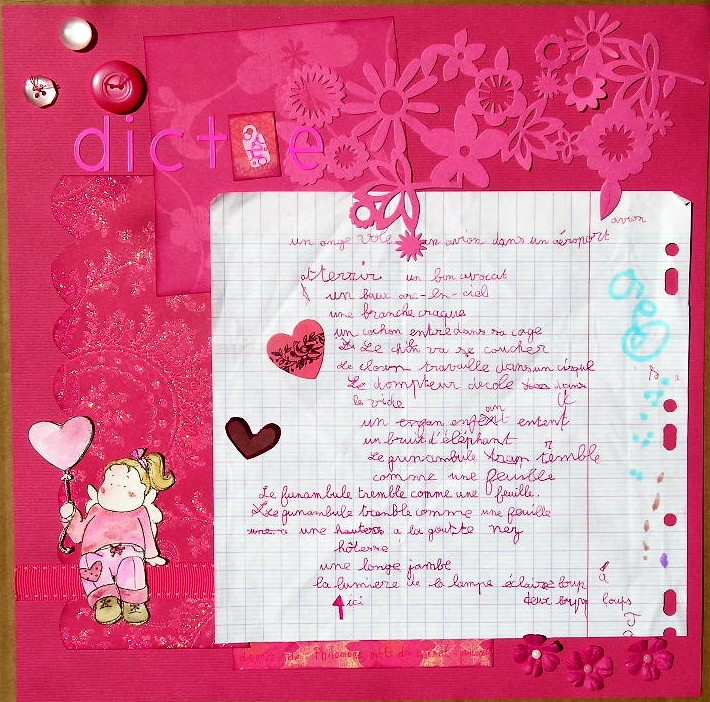 dictée
avion
un ange vole un avion dans un aéroport
atterrir un bon avocat
un baux arc-en-ciel
une branche craque
un cochon entre dans sa cage
Le chin va se coucher
Le cloun travaille dans un cirque
Le dompteur décole dans
le vide
un enfent entent
un bruit d'éléphant
Le gunambule tremble
comme une feuille
Le funambule tremble comme une feuille.
Le gunambule tramble comme une feuille
une hauters a la goutte nez
hôtesse
une longe jambe
la lumiere de la lampe éclaire loup
ici deux loups